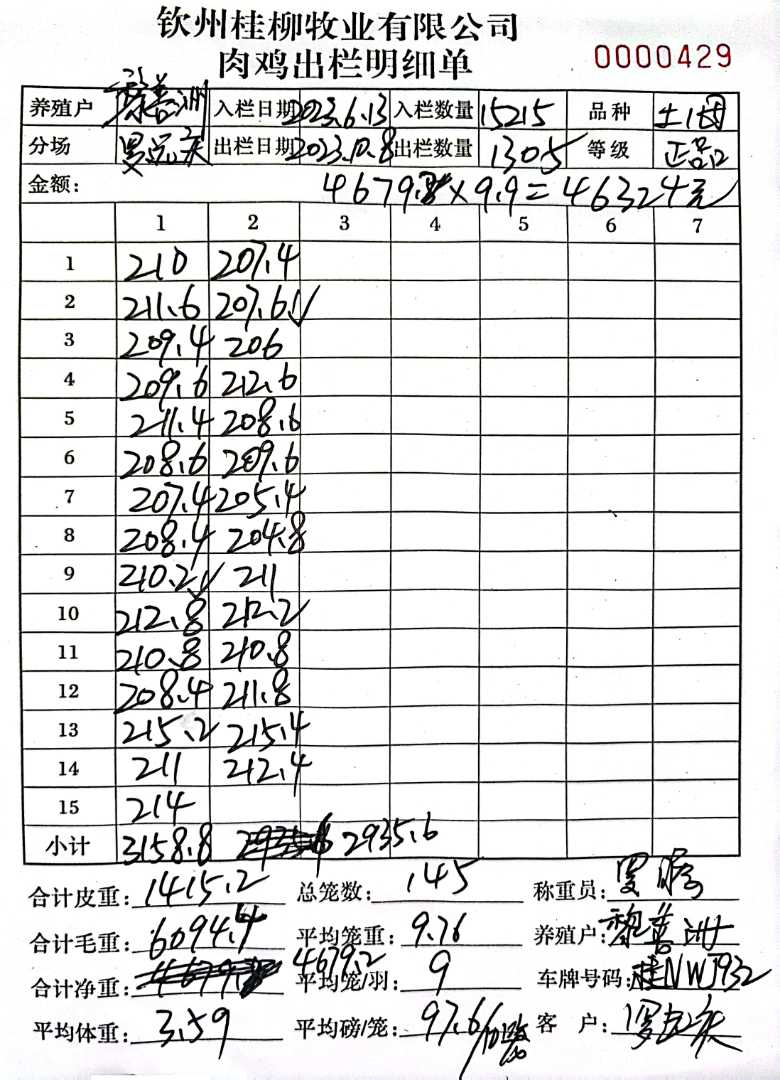 钦州桂柳牧业有限公司
肉鸡出栏明细单 0000429
养殖户 黎善洲 入栏日期 2023.6.13 入栏数量 15215 品种 土1
分场 出栏日期 2023.10.8 出栏数量 1305 等级 正品
金额: 4679.2×9.9=46324元
1 2 3 4 5 6 7
1 210 207.4
2 211.6 207.6
3 209.4 206
4 209.6 212.6
5 211.4 208.6
6 208.6 209.6
7 207.4 205.4
8 208.4 204.8
9 210.2 211
10 212.8 212.2
11 210.8 210.8
12 208.4 211.8
13 215.2 215.4
14 211 212.4
15 214
小计 3158.8 2935.6
合计皮重: 1415.2 总笼数: 145 称重员:
合计毛重: 6094.4 平均笼重: 9.76 养殖户: 黎善洲
合计净重: 4679.2 平均笼/羽: 9 车牌号码: 桂NWJ932
平均体重: 3.59 平均磅/笼: 97.6/10 客 户: